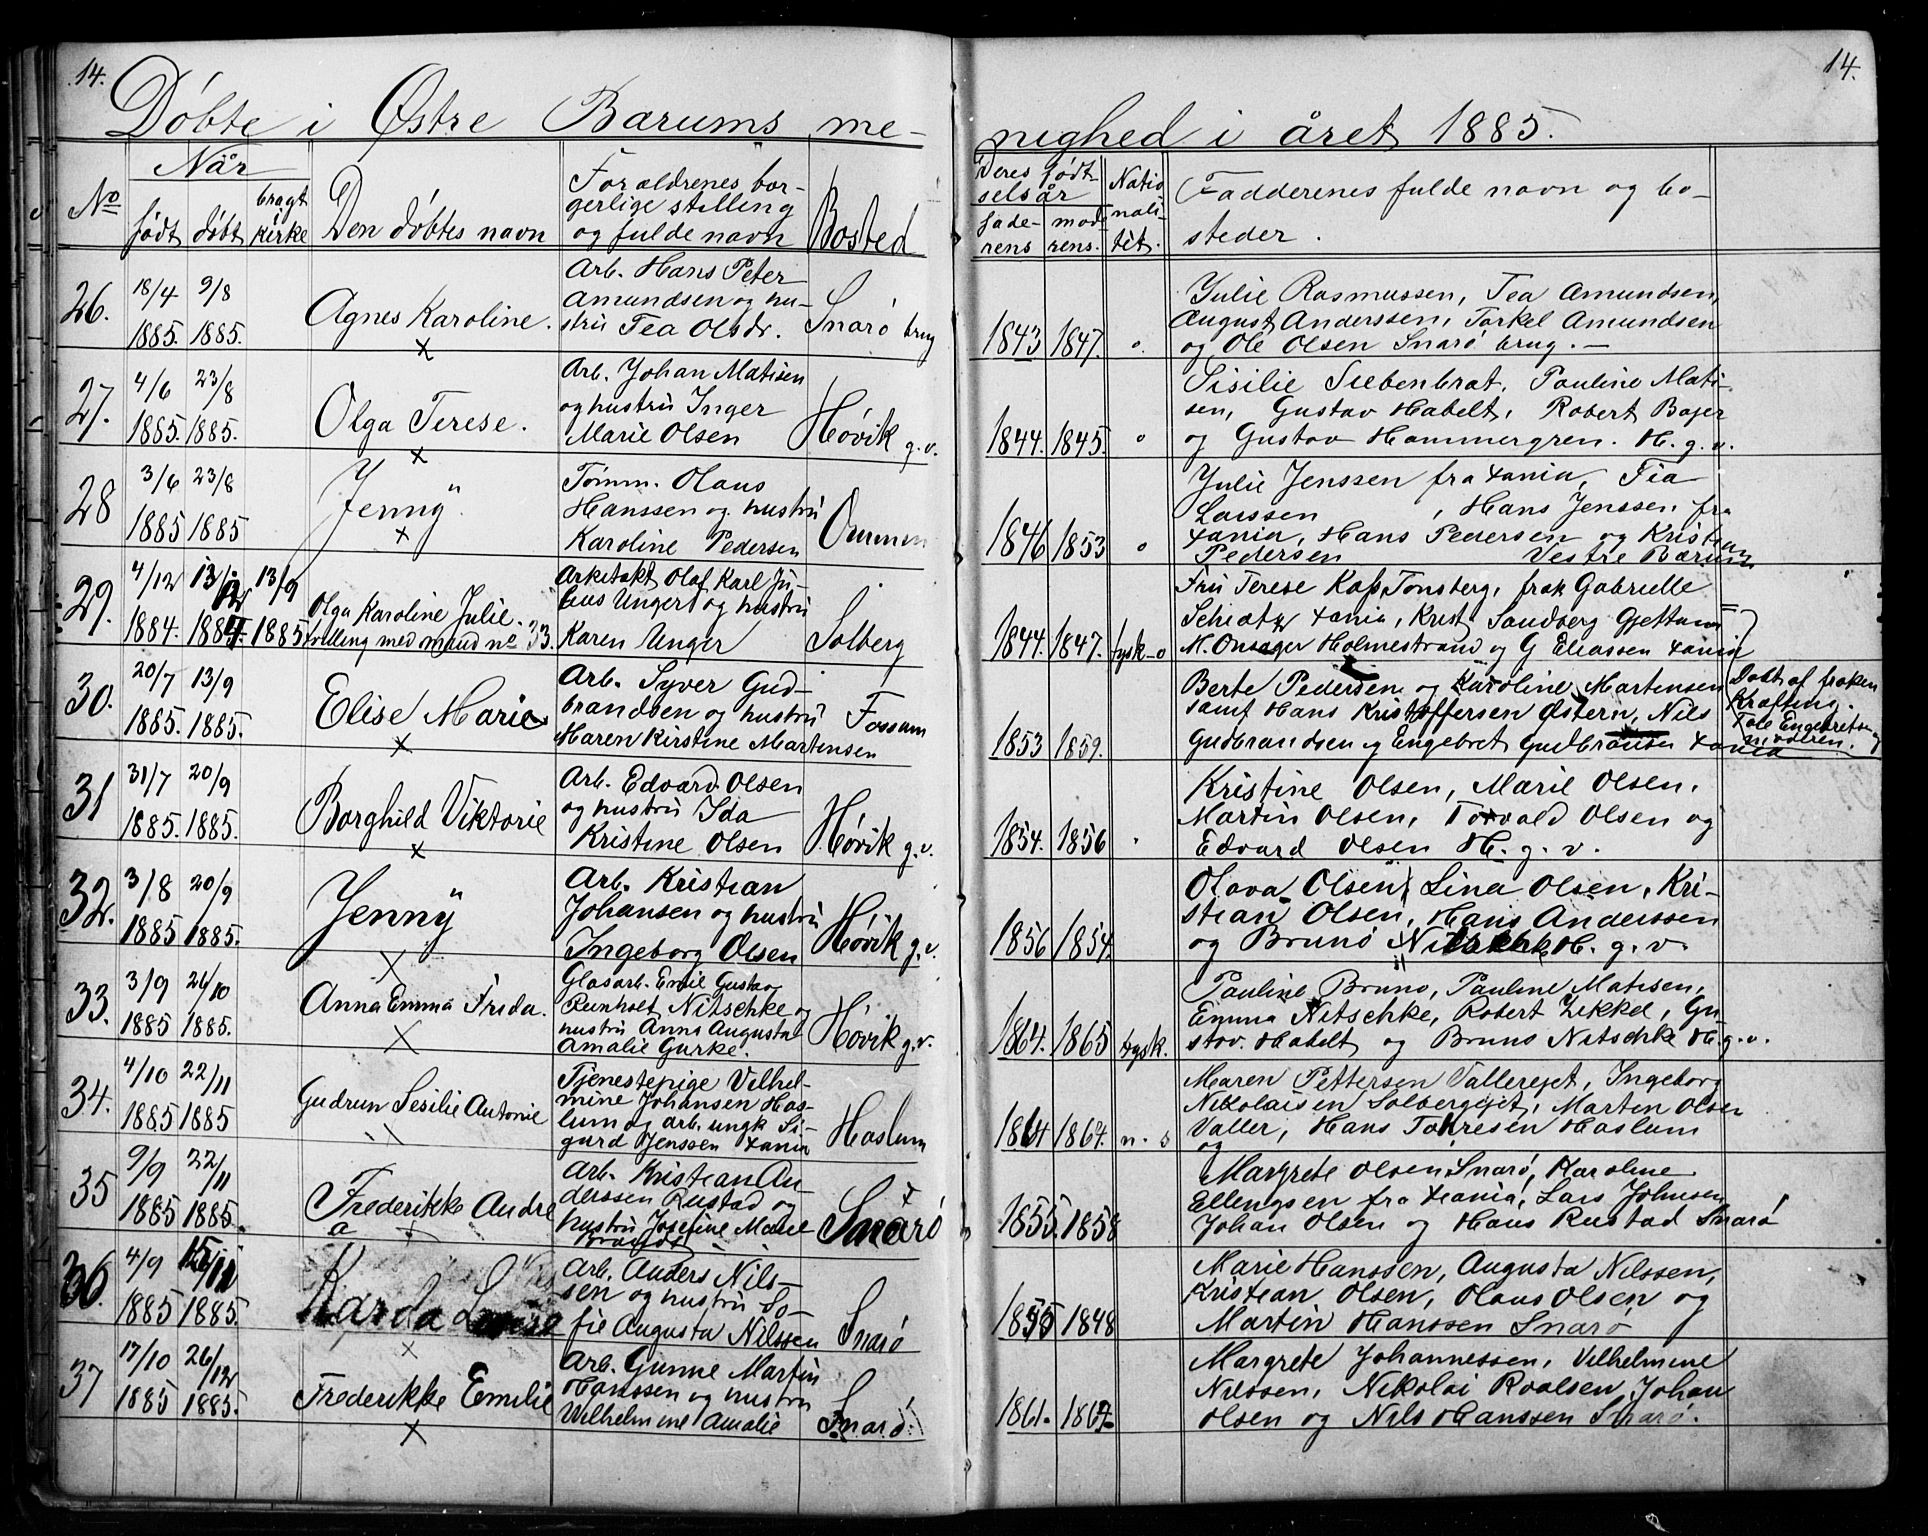 14.
14.
Døbte i Østre Bærums me-
nighed i året 1885.
No
Når
født
døbt
bragt kirke
Den døbtes navn
Forældrenes bor-
gerlige stilling
og fulde navn
Bosted
Deres født-
selsår
fade-
rens
mod
rens.
Natio
nali-
tet.
Fadderenes fulde navn og bo-
steder.
26.
18/4 9/8
1885. 1885.
Agnes Karoline.
x
Arb. Hans Peter
Amundsen og hu-
stru Tea Olsdr.
Snarø brug
1843 1847.
Julie Rasmussen, Tea Amundsen,
August Anderssen, Torkel Amundsen
og Ole Olsen Snarø brug. —
27.
4/6 23/8
1885. 1885.
Olga Terese.
x
Arb. Johan Matisen
og hustru Inger
Marie Olsen
Høvik g.v.
1844. 1845.
Sisilie Siebenbrat, Pauline Mati-
sen, Gustav Habelt, Robert Bajer
og Gustav Hammergren. H. g. v.
28
3/6 23/8
1885 1885
Jenny
x
Tømm. Olaus
Hanssen og hustru
Karoline Pedersen
1846 1853
Julie Jenssen fra Xania, Tia
Larssen, Hans Jenssen fra
Xania, Hans Pedersen og Kristian
Pedersen Vestre Bærum
29.
4/12 13/12 13/9
1884. 1884. 1885
Olga Karoline Julie.
tvilling med mand no 33.
Arkitekt Olaf Karl Ju-
lius Unger og hustru
Karen Unger
Solberg
1844. 1847. tysk-o
Fru Terese Kaps Tønsberg, frøk Gabrielle
Schiøtz Xania, Krist. Sandberg Gjettum
M. Onsager Holmestrand og G Eliassen Xania
Døbt af frøken
Krafting.
Tole Engebretsen og
moderen.
30.
20/7 13/9
1885. 1885.
Elise Marie
x
Arb. Syver Gud-
brandsen og hustru
Maren Kirstine Martensen
Fossum
1853 1859.
Berte Pedersen og Karoline Martensen
samt Hans Kristoffersen Østern, Nils
Gudbrandsen og Engebret Gudbransen Xania
31
31/7 20/9
1885. 1885.
Borghild Viktorie
x
Arb. Edvard Olsen
og hustru Ida
Kristine Olsen
Høvik g.v.
1854. 1856
Kristine Olsen, Marie Olsen,
Martin Olsen, Torvald Olsen og
Edvard Olsen H. g. v.
32.
3/8 20/9
1885 1885.
Jenny
x
Arb. Kristian
Johansen og hustru
Ingeborg Olsen
Høvik g.v.
1856 1854.
Olava Olsen, Lina Olsen, Kri-
stian Olsen, Hans Anderssen
og Bruno H. g. v.
33.
3/9 26/10
1885 1885.
Anna Emma Frida.
x
Glasarb. Emil Gustav
Reinholt Nitschke og
hustru Anna Augusta
Amalie Gurke.
Høvik g.v.
1864. 1865 tysk.
Pauline Bruno, Pauline Matisen,
Emma Nitschke, Robert Zikkel, Gu
stav. Habelt og Bruno Nitschke H. g. v.
34.
4/10 22/11
1885 1885
Gudrun Sesilie Antonie
Tjenestepige Vilhel-
mine Johansen Has-
lum og arb. ungk Si-
gurd Jenssen Xania
Haslum
1864 1864. n. o
Maren Pettersen Vallerejet, Ingeborg
Nikolaisen Solbergejet, Marten Olsen
Valler, Hans Toresen Haslum
og
35
9/9 22/11
1885 1885.
Frederikke Andre
a
x
Arb. Kristian An
derssen Rustad og
hustru Josefine Marie
Brandt
Snarø
1855. 1858
Margrete Olsen Snarø, Karoline
Ellengsen fra Xania, Lars Johnsen
Johan Olsen og Hans Rustad Snarø
36.
4/9
1885 1885.
Karda
x
Arb. Anders Nils-
sen og hustru So-
fie Augusta Nilssen
Snarø
1855 1848
Marie Hanssen, Augusta Nilssen,
Kristian Olsen, Olaus Olsen og
Martin Hanssen Snarø
37
17/10 26/12
1885 1885.
Frederikke Emilie
x
Arb. Gunne Martin
Hanssen og hustru
Vilhelmine Amalie
Snarø.
1861.
Margrete Johannessen, Vilhelmine
Nilssen, Nikolai Roalsen, Johan
Olsen og Nils Hanssen Snarø.